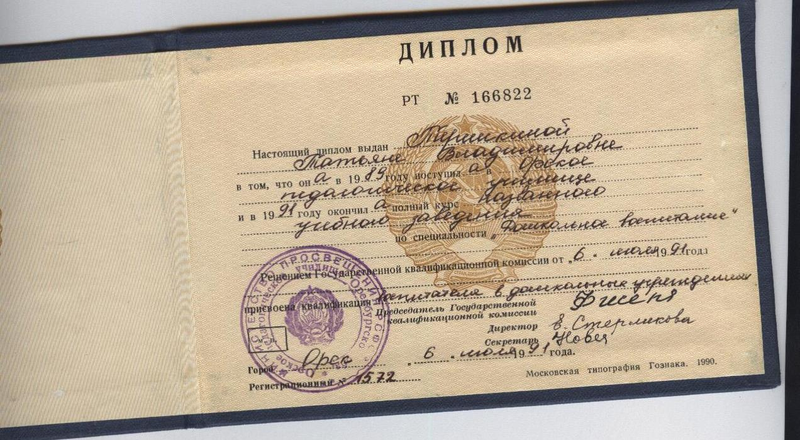 ДИПЛОМ
РТ № 166822
Настоящий диплом выдан
Татьяне Владимировне
в том, что она в 1989 году поступила в Орское
педагогическое училище
и в 1991 году окончила полный курс названного
учебного заведения
по специальности „Дошкольное воспитание"
Решением Государственной квалификационной комиссии от 6 июля 1991 год
присвоена квалификация воспитателя в дошкольных учреждениях
Председатель Государственной
квалификационной комиссии
Директор
Секретарь
Город Орск 6 июля 1991 года.
Регистрационный № 1572
Московская типография Гознака. 1990.